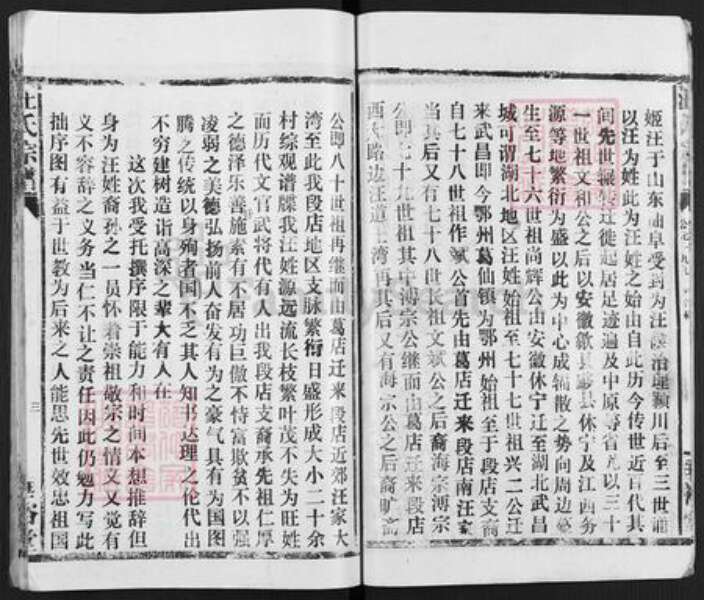 姬汪于山东曲阜受封为汪 治理颍川后至三世诵
以汪为姓此为汪姓之始由自此历今传世近百代其
间先世辗转迁徙起居足迹遍及中原等省凡以三十
一世祖文和公之后以安徽歙县黟县休宁及江西务
源等地繁衍为盛以此为中心成辐散之势向周边蔓
生至七十六世祖尚辉公由安徽休宁迁至湖北武昌
城可谓湖北地区汪姓始祖至七十七世祖兴二公迁
来武昌即今鄂州葛仙镇为鄂州始祖至于段店支裔
自七十八世祖作斌公首先由葛店迁来段店南汪家
当其后又有七十八世长祖文斌公之后裔海宗溥宗
公即七十九世祖其中溥宗公继而由葛店迁来段店
西大路边汪道士湾再其后又有海宗公之后裔旷斋
公即八十世祖再继而由葛店迁来段店近郊汪家大
湾至此我段店地区支脉繁衍日盛形成大小二十余
村综观谱牒我汪姓源远流长枝繁叶茂不失为旺姓
而历代文官武将代有人出我段店支裔承先祖仁厚
之德泽乐善施素有不居功巨傲不恃富欺贫不以强
凌弱之美德弘扬前人奋发有为之豪气具有为国图
腾之传统以身殉者国不乏其人知书达理之伦代出
不穷建树造诣高深之辈大有人在
这次我受托撰序限于能力和时间本想推辞但
身为汪姓裔孙之一员怀着崇祖敬宗之情又又觉有
义不容辞之义务当仁不让之责任因此仍勉力写此
拙序图有益于世教为后来之人能思先世效忠祖国
三